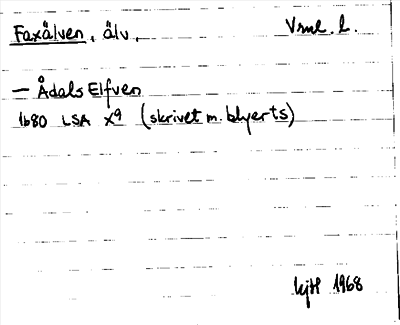 Faxälven, älv. Vml. l.
— Ådals Elfven
1680 LSA X9 (skrivet m. blyerts)
kjH 1968